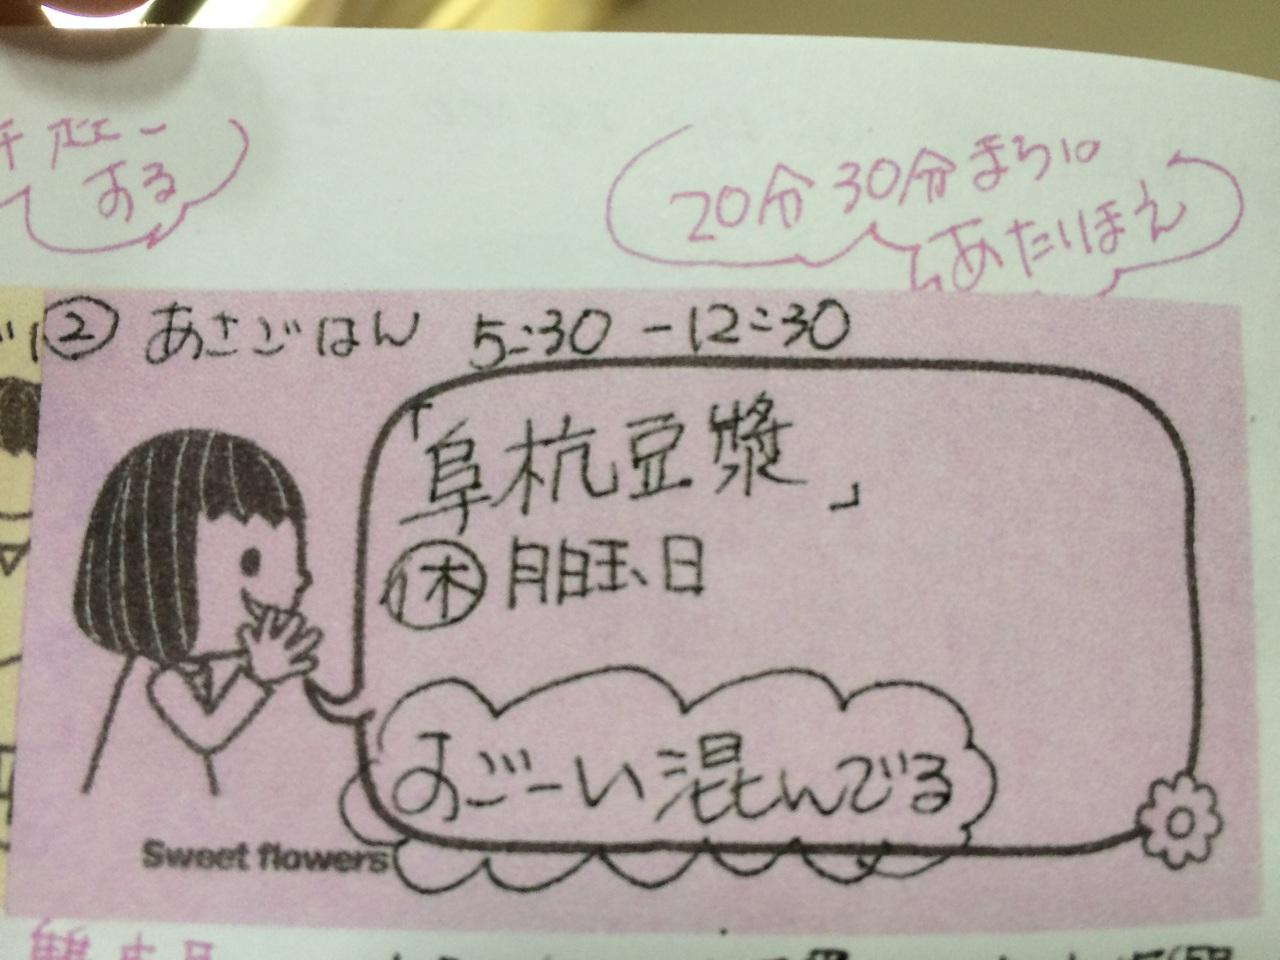 する
20分 30分まちは
あたりまえ
② あさごはん 5:30 -12:30
「阜杭豆漿」
㊡ 月曜日
すごーい混んでる
Sweet flowers